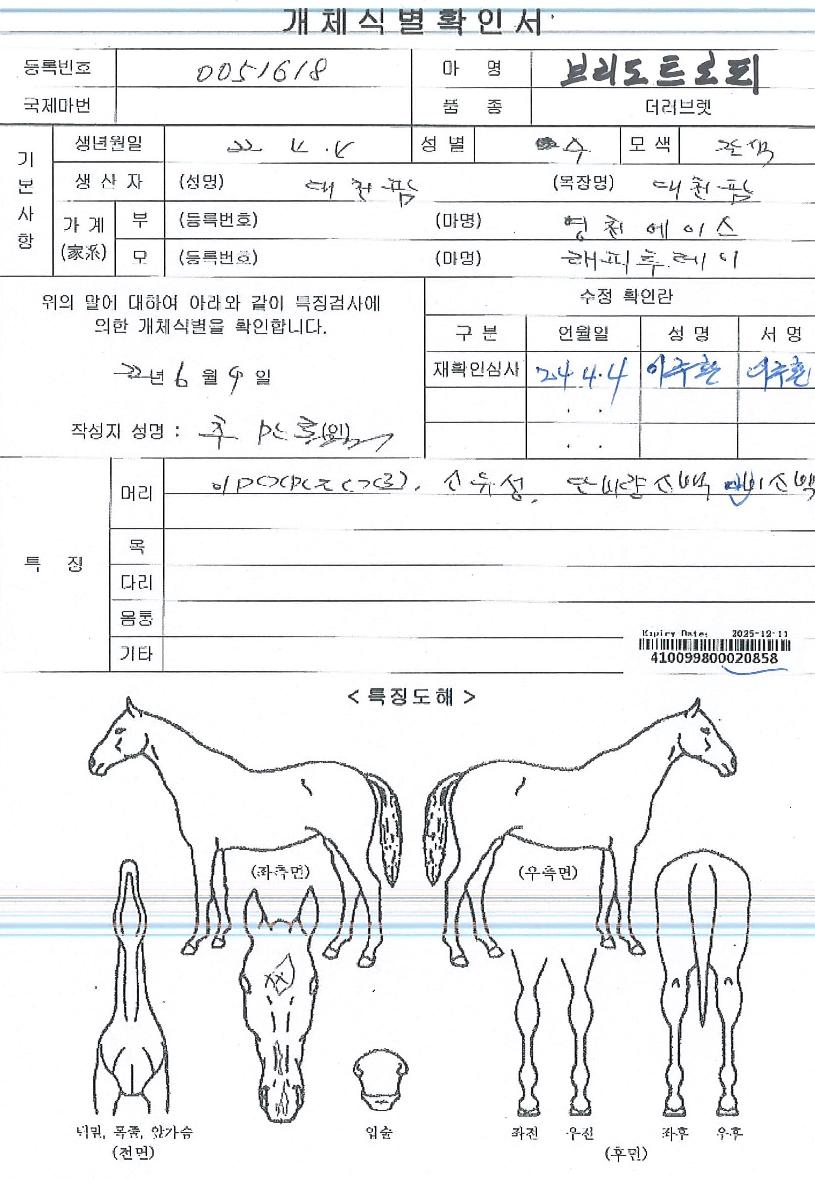 개체식별확인서
등록번호 0051618 마 명 브리도트로피
국제마번 품 종 더러브렛
기본사항
생년월일 22 4. 4 성 별 수 모 색 갈색
생 산 자 (성명) 대천팜 (목장명) 대천팜
가 계 (家系) 부 (등록번호) (마명) 명천에이스
모 (등록번호) (마명) 래피투레이
위의 말에 대하여 아래와 같이 특징검사에
의한 개체식별을 확인합니다.
22년 6월 9일
작성자 성명 : (인)
수정 확인란
구 분 연월일 성 명 서 명
재확인심사 24 4. 4 이주환 이주환
. .
. .
특 징
머리 유성,
목
다리
몸통
기타
Expiry Date: 2025-12-11
410099800020858
< 특징도해 >
(좌측면) (우측면)
뒤턱, 목줄, 앞가슴
(전면)
입술
좌전 우전 좌후 우후
(후면)